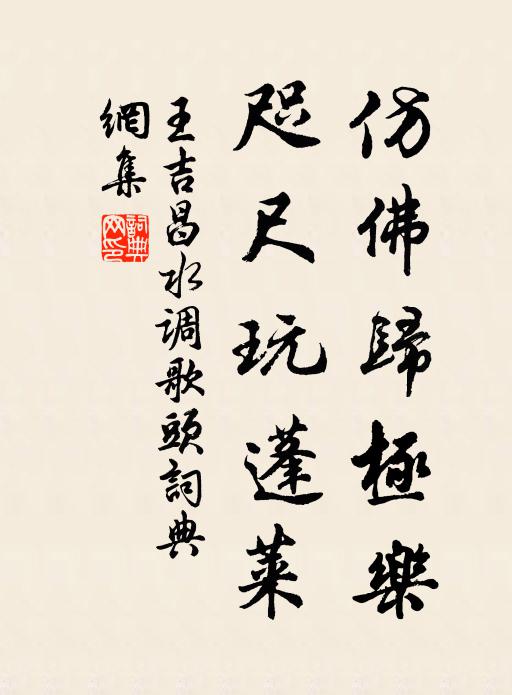 仿佛歸極樂
咫尺玩蓬萊
王吉昌水调歌頭詞典
網集
詞典網印